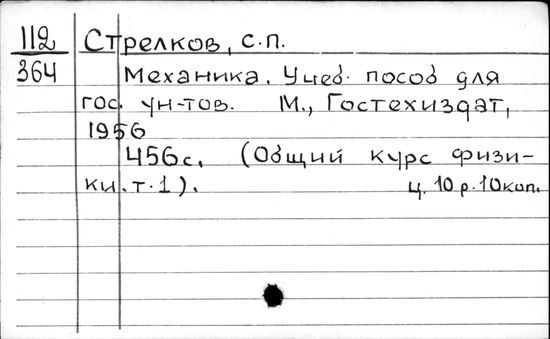 112 Стрелков, С.П.
364 Механика. Учеб. пособ для
гос. ун-тов. М., Гостехиздат,
1956
456с. (Общий курс физи-
ки. т. 1). ц. 10 р. 10 коп.